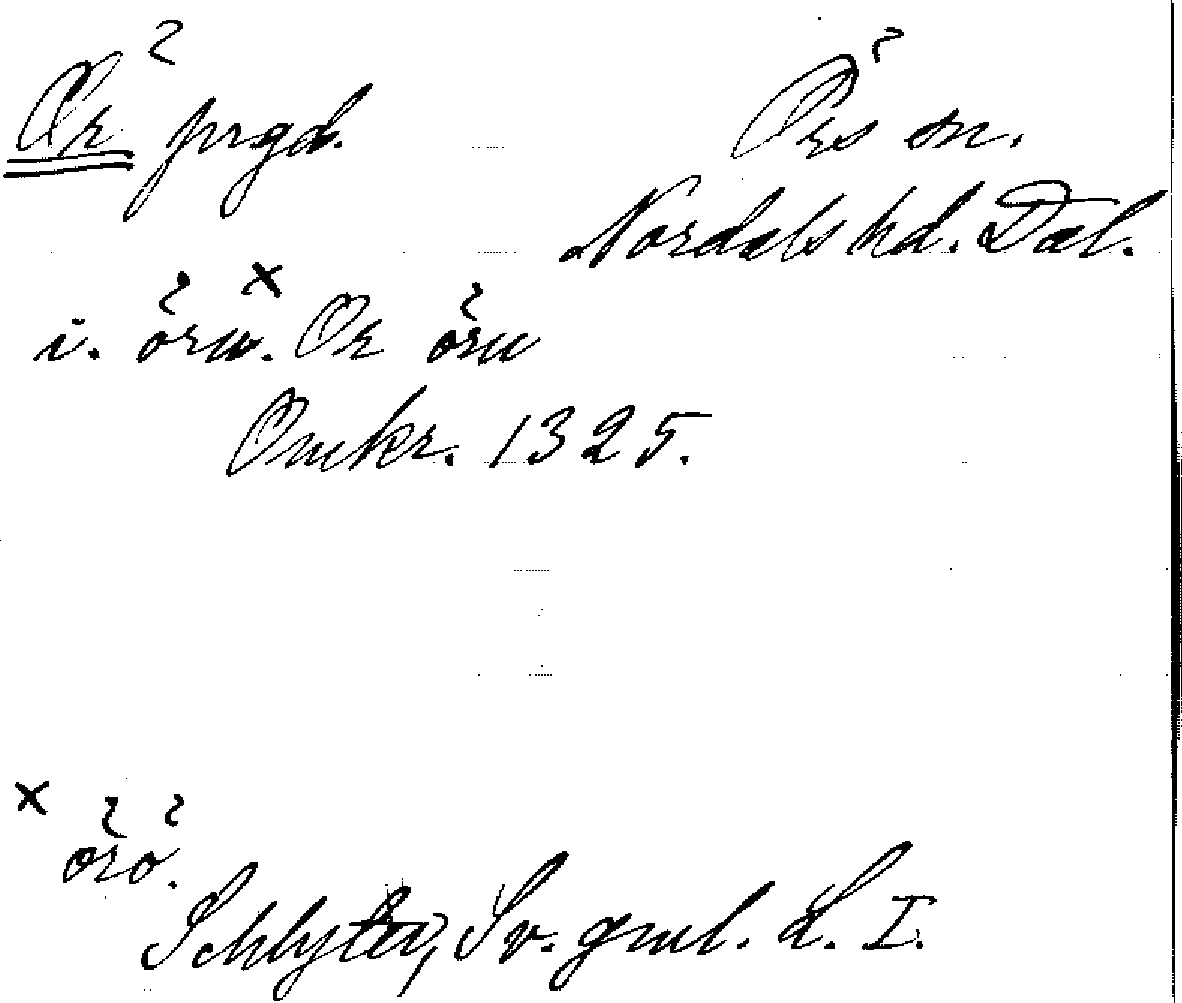 Ör prgd. Örs sn.
Nordals hd. Dal.
i. öru. Or öru
Omkr. 1325.
x örö.
Schlyter, Sv. gml. L. I.